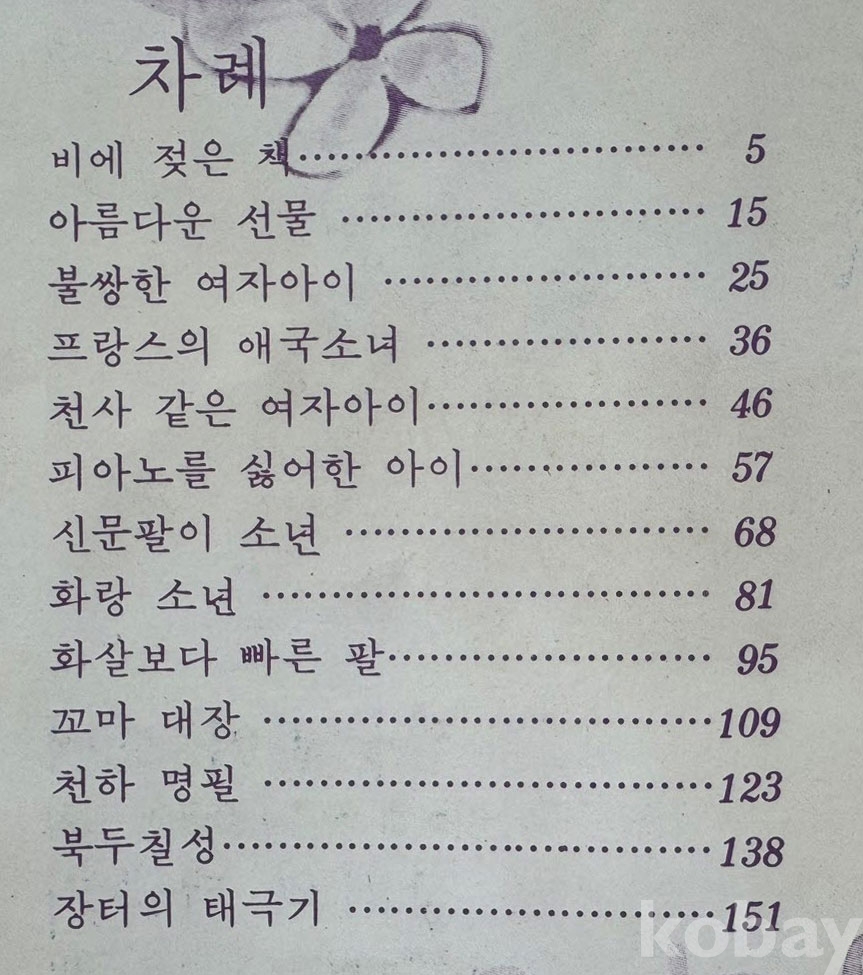 차례
비에 젖은 책······························ 5
아름다운 선물 ······························ 15
불쌍한 여자아이 ·························· 25
프랑스의 애국소녀 ······················ 36
천사 같은 여자아이······················ 46
피아노를 싫어한 아이·················· 57
신문팔이 소년 ······························ 68
화랑 소년 ···································· 81
화살보다 빠른 팔·························· 95
꼬마 대장 ····································109
천하 명필 ····································123
북두칠성········································138
장터의 태극기 ······························151
kobay